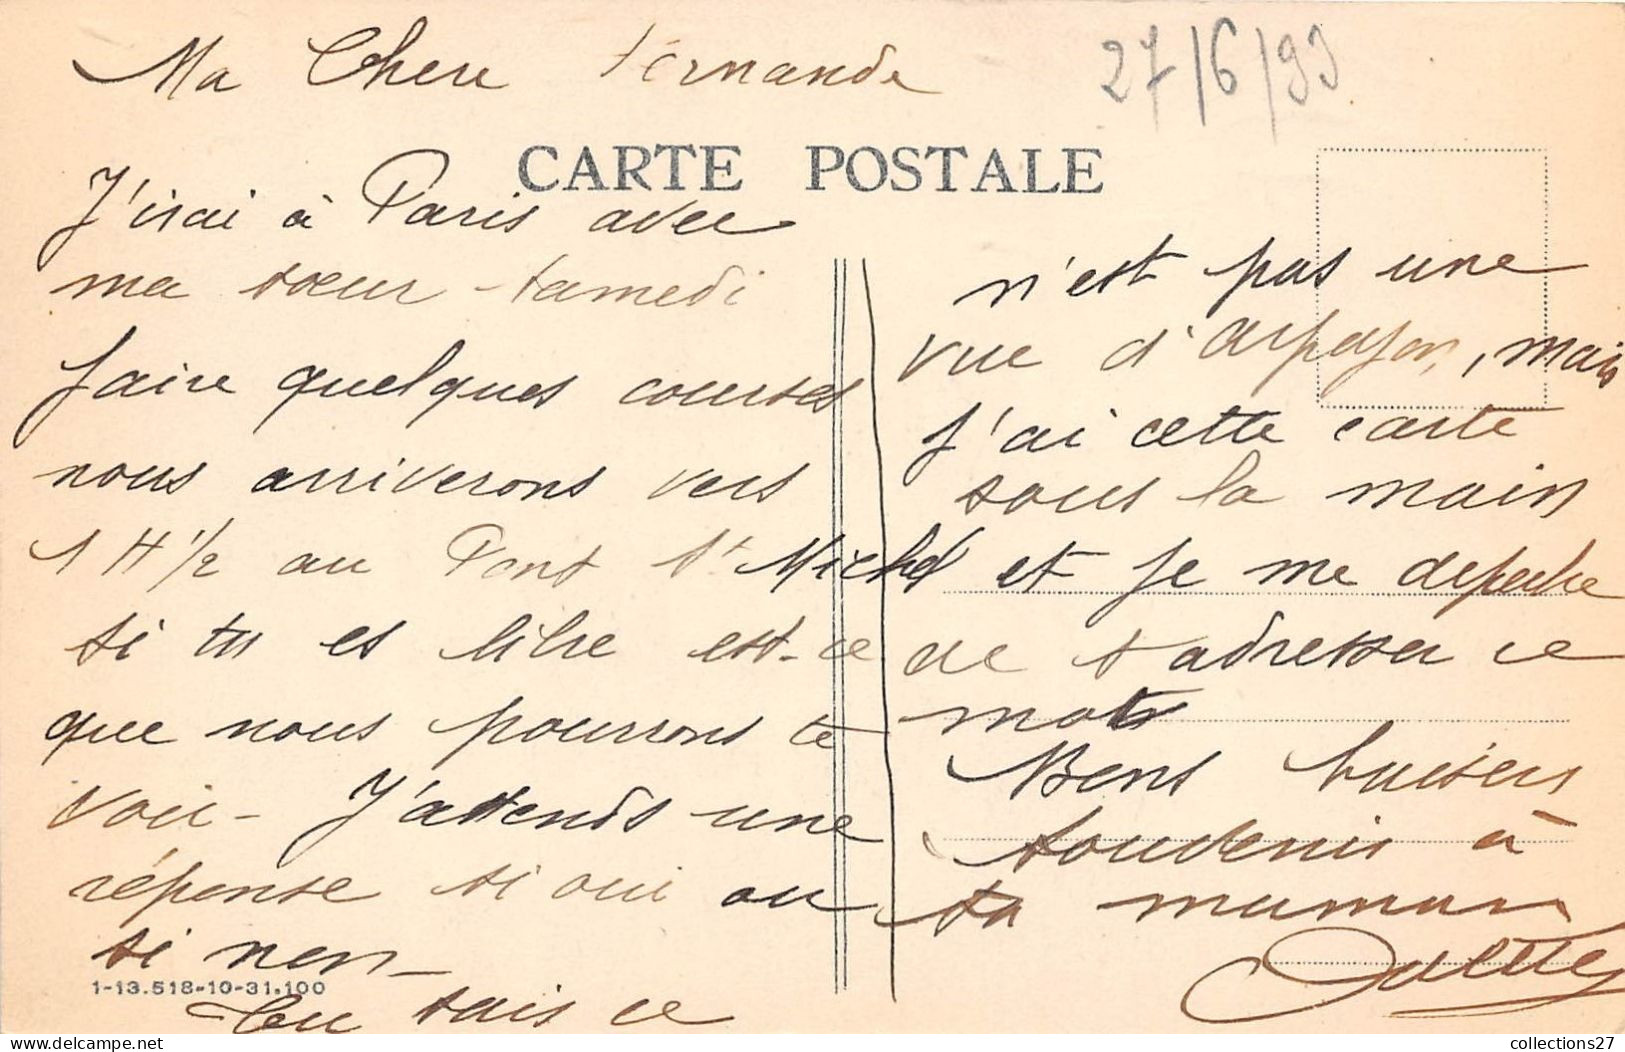 Ma Chere Fernande
27/6/33
CARTE POSTALE
J'irai à Paris avec
ma sœur samedi
faire quelques courses
nous arriverons vers
1 H 1/2 au Pont St Michel
si tu es libre est-ce
que nous pourrons te
voir - J'attends une
réponse si oui ou
si non -
Tu sais ce
1-13.518-10-31.100
n'est pas une
vue d'arpajon, mais
j'ai cette carte
sous la main
et je me depeche
de t'adresser ce
mot
Bons baisers
souvenir à
ta maman
collections27